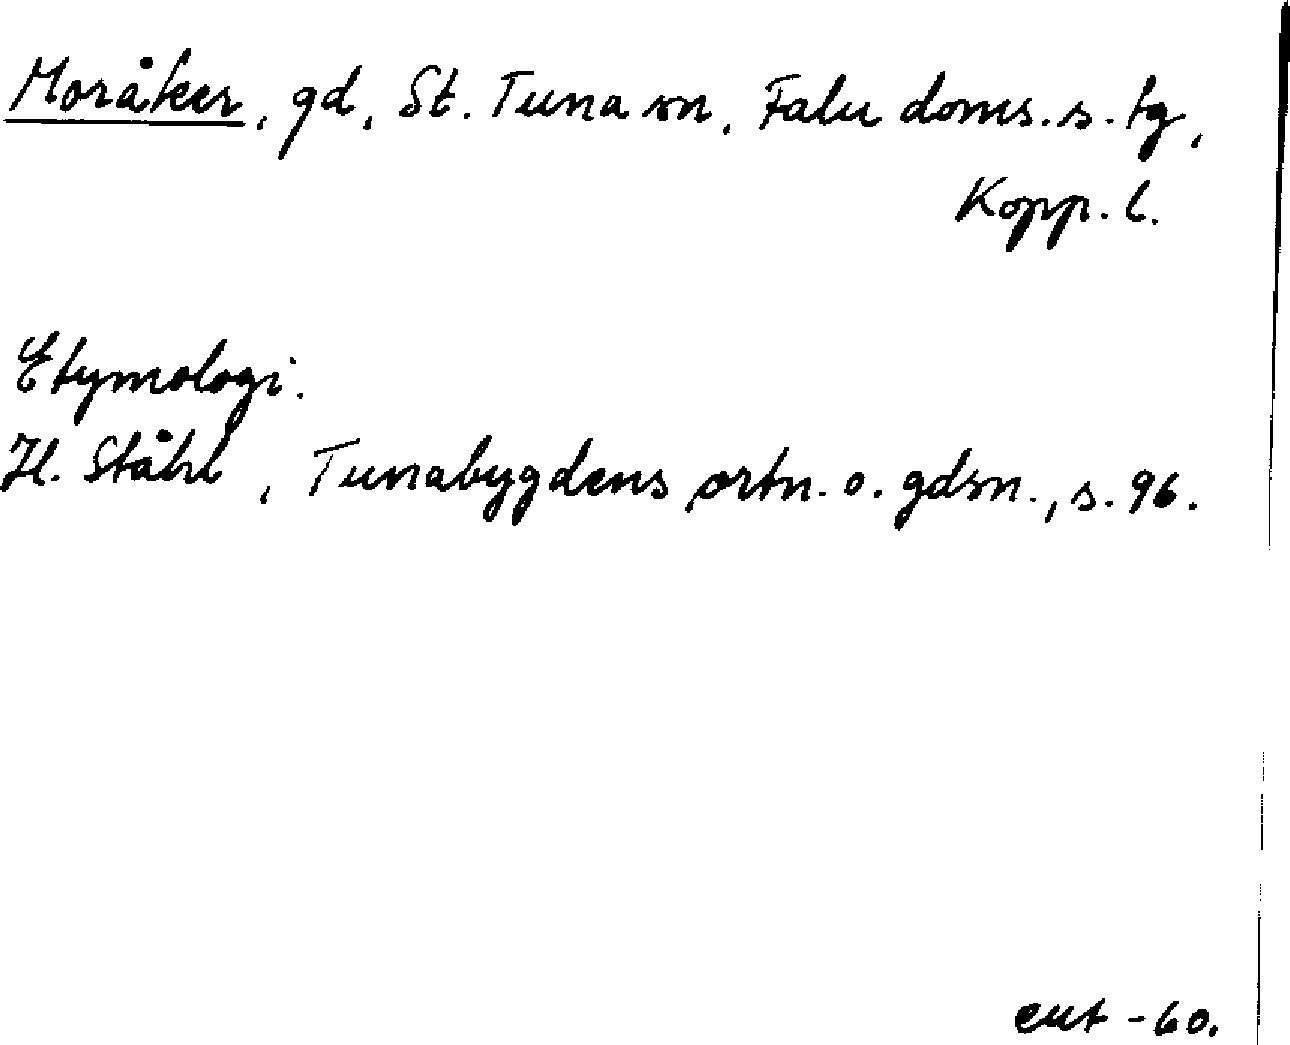 Moråker, gd, St. Tuna sn, Falu doms.s. tg,
Kopp. l.
Etymologi.
H. Ståhl, Tunabygdens ortn. o. gdsn., s. 96.
eut -60.